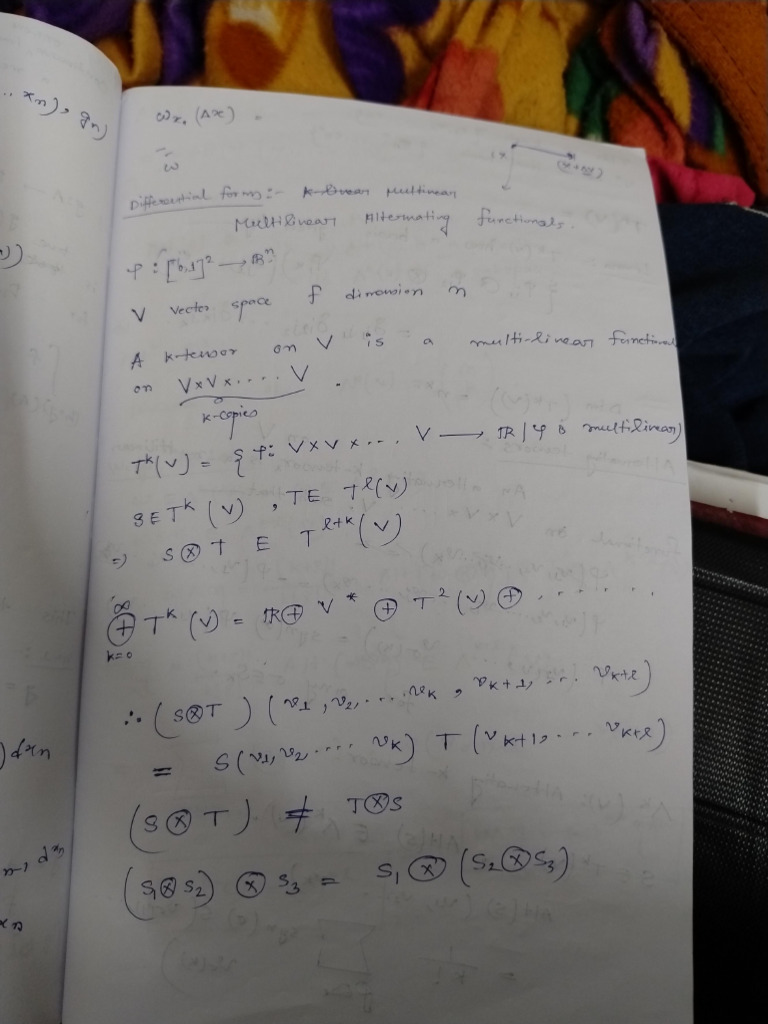 .. xn), gn)
ω_{x₀} (Δx) =
ω
Differential forms:- Multinear
Multilinear Alternating functionals.
φ : [0,1]² → ℝⁿ
V vector space of dimension n
A k-tensor on V is a multi-linear functional
on V×V×.... V .
k-copies
Tᵏ(V) = { φ: V×V×... V → ℝ | φ is multilinear}
S ∈ Tᵏ(V) , T ∈ Tˡ(V)
⇒ S⊗T ∈ Tˡ⁺ᵏ(V)
∞
⊕ Tᵏ(V) = ℝ ⊕ V* ⊕ T²(V) ⊕ .......
k=0
∴ (S⊗T) (v₁, v₂, ... vₖ, vₖ₊₁, ... vₖ₊ₗ)
= S(v₁, v₂ .... vₖ) T(vₖ₊₁, ... vₖ₊ₗ)
(S⊗T) ≠ T⊗S
(S₁⊗S₂) ⊗ S₃ = S₁ ⊗ (S₂⊗S₃)
)dxn